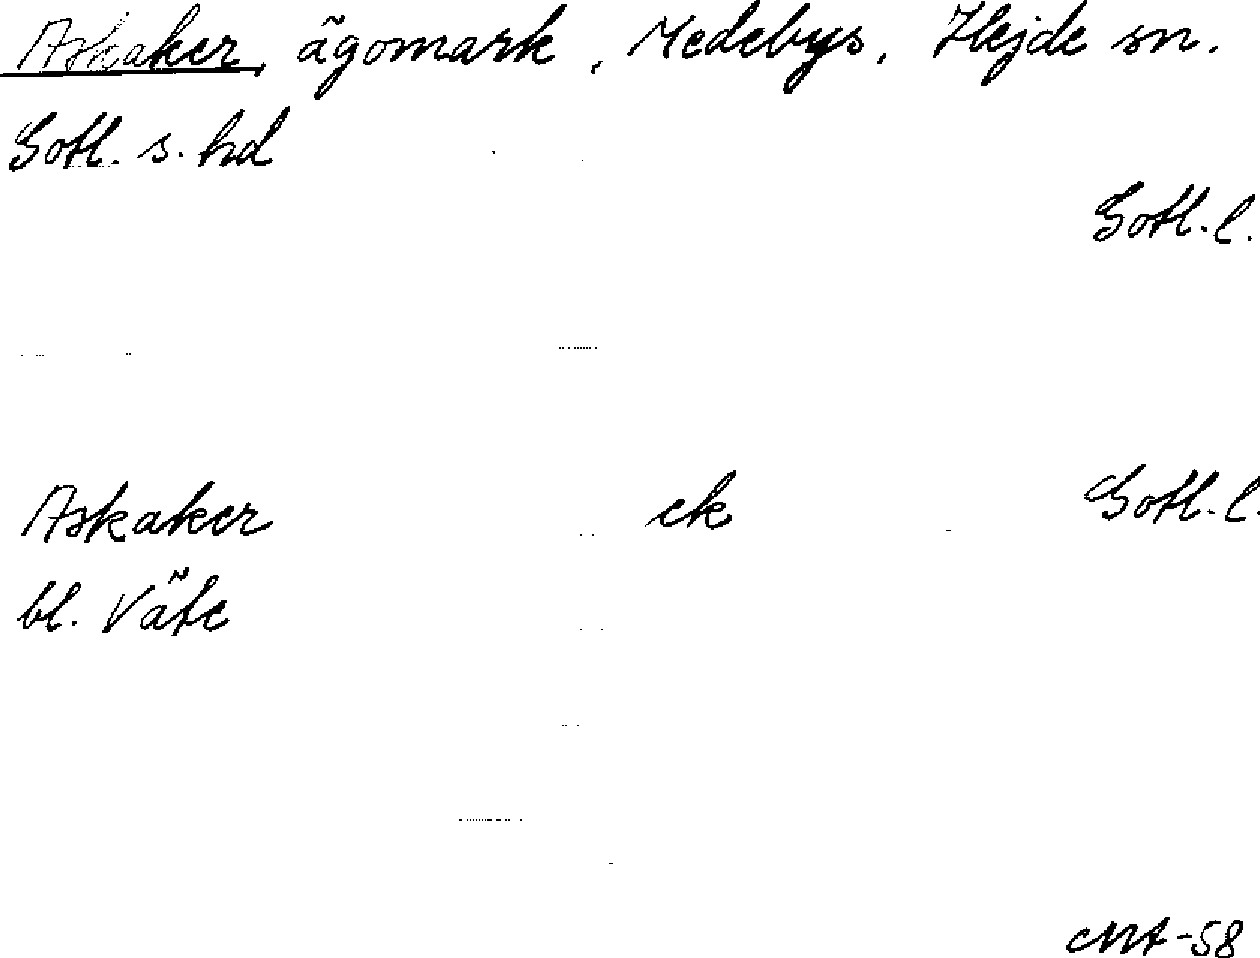 Askaker, ägomark, Medebys, Hejde sn.
Gotl. s. hd
Gotl. l.
Askaker ek Gotl. l.
bl. Väte
MA-58